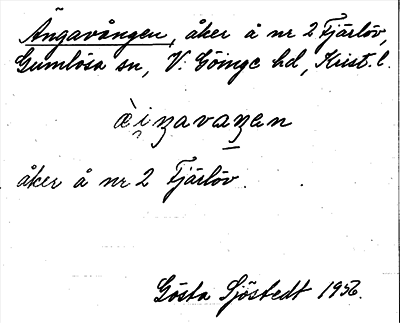 Ängavången, åker å nr 2 Fjärlöv,
Gumlösa sn, V. Göinge hd, Krist. l.
åker å nr 2 Fjärlöv.
Gösta Sjöstedt 1956.